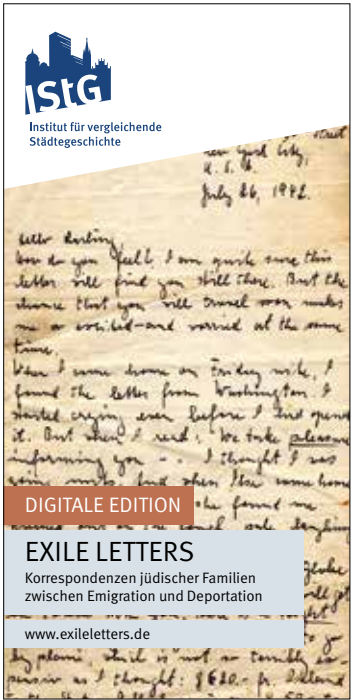 IStG
Institut für vergleichende
Städtegeschichte
Street
New York City,
U.S.A.
July 26, 1942.
Hello Darling,
how do you feel? I am quite sure this
letter will find you still there. But the
chance that you will travel soon makes
me so excited - and worried at the same
time.
When I came home on Friday nite, I
found the letter from Washington, I
started crying even before I had opened
it. But when I read: "We take pleasure
informing you - .. I thought I was
going nuts. And when Ilse came home
she found me
DIGITALE EDITION
EXILE LETTERS
Korrespondenzen jüdischer Familien
zwischen Emigration und Deportation
www.exileletters.de
by plane, which is not so terribly ex-
pensive as I thought: